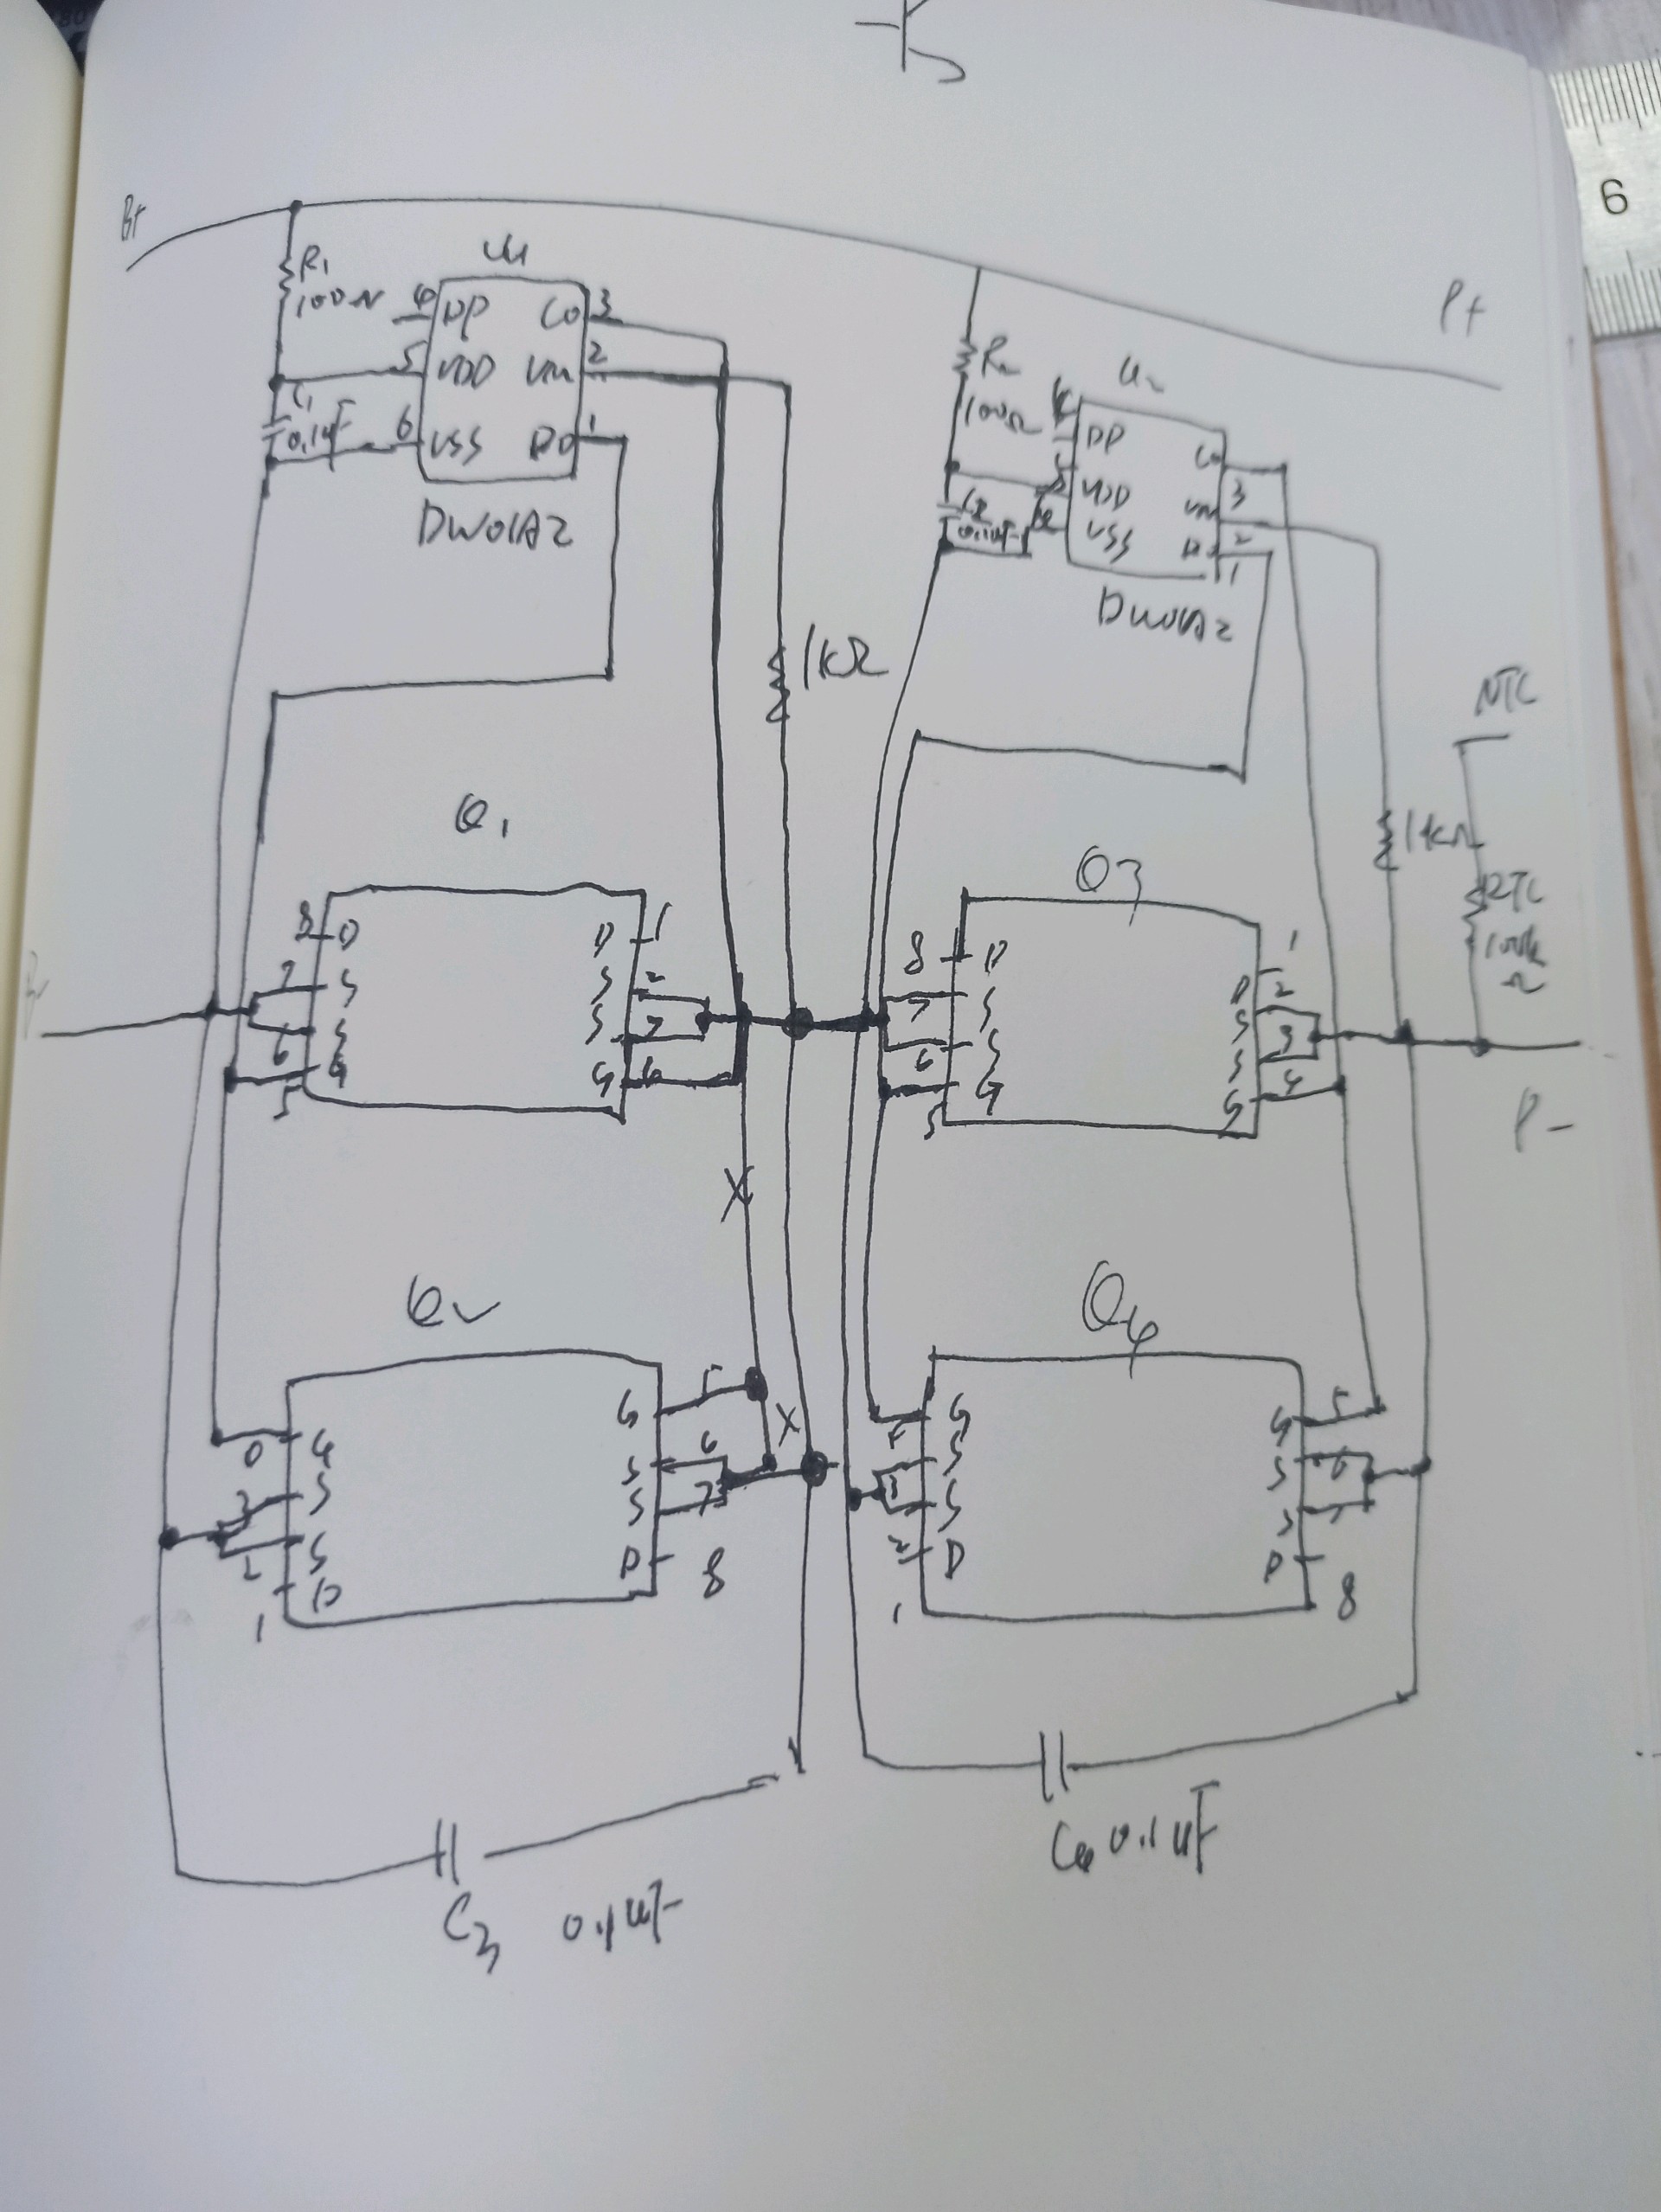 6
B+
U1
R1
100Ω
4 DP CO 3
5 VDD VM 2
C1
0.1uF
6 VSS DO 1
DW01A2
P+
R2
100Ω
U2
DP
CO
3
VDD
VM
2
C2
0.1uF
VSS
1
DW01A2
1kΩ
NTC
1kΩ
RTC
100k
Ω
Q1
Q3
8 D D 1
7 S S 2
S S
6 G G
5
8 D 1
7 S D 2
S S 3
6 G S 4
5 G
P-
X
Q2
Q4
G G 5
3 S S 6
S S 7
2 D D 8
1
G G 5
S S 6
3 S S 7
2 D D 8
1
X
C4 0.1uF
C3 0.1uF